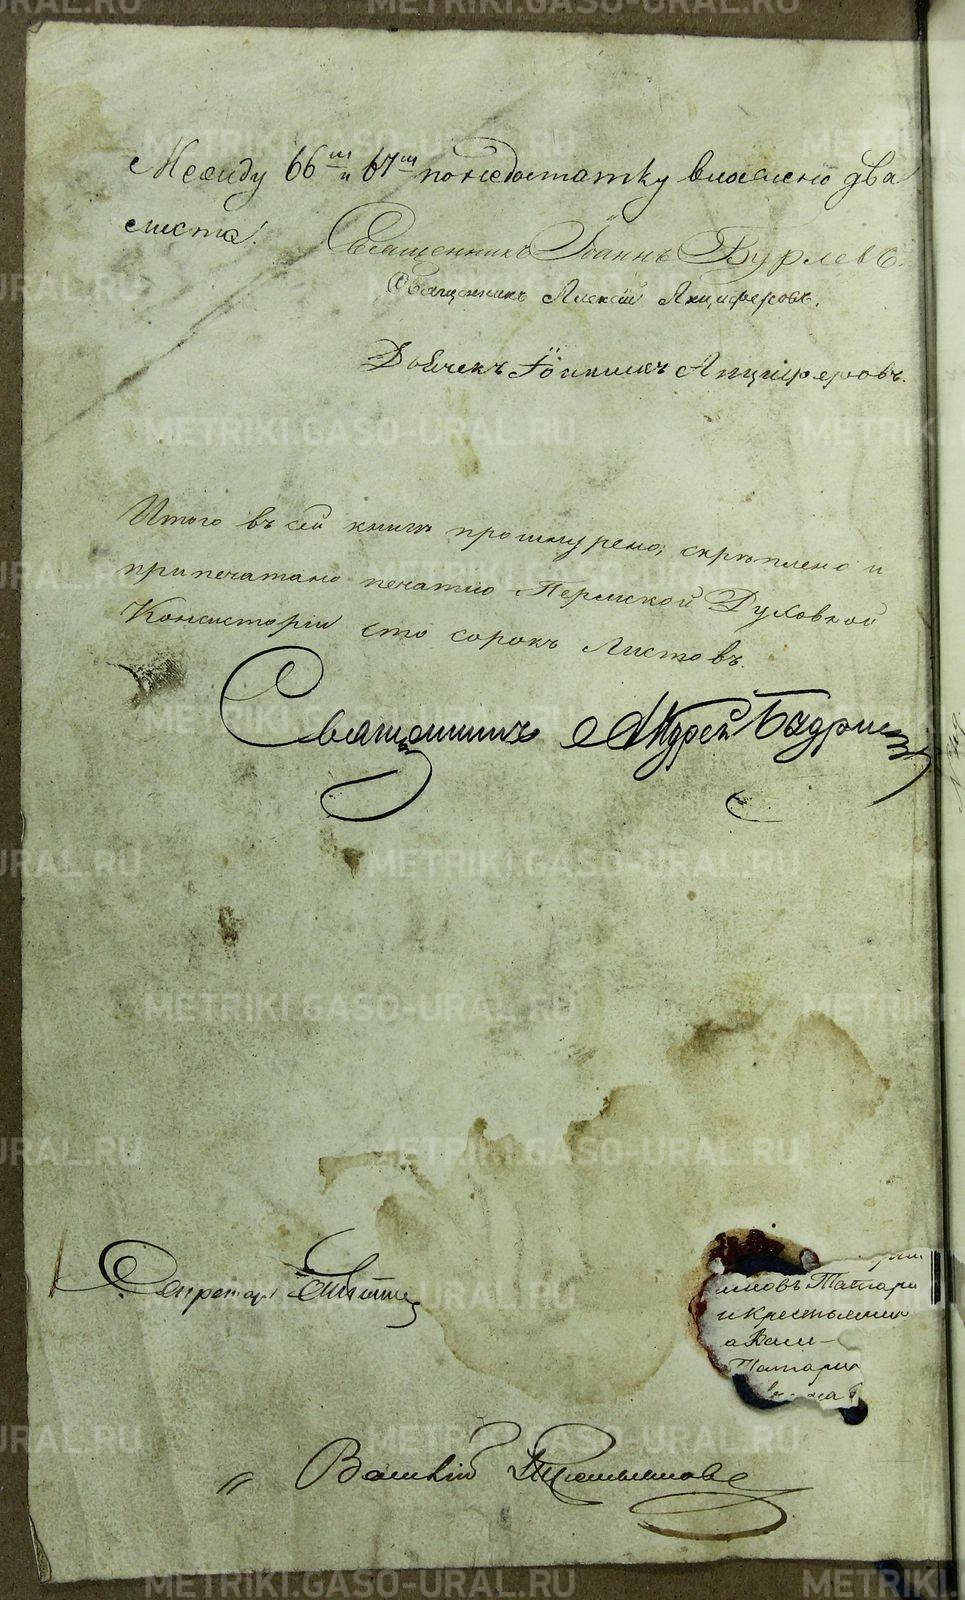 Между 66м и 67м по недостатку вложено два
листа.
Священникъ Іоаннъ Бурлевъ.
Священникъ Алексій Анциферовъ.
Дьячекъ Анциферовъ.
Итого въ сей книгѣ прошнурено, скрѣплено и
припечатано печатью Пермской Духовной
Консисторіи сто сорокъ листовъ.
Священникъ Андрей
Секретарь
миновъ Татари
и Крестьянин
а Васи-
Татари
METRIKI.GASO-URAL.RU